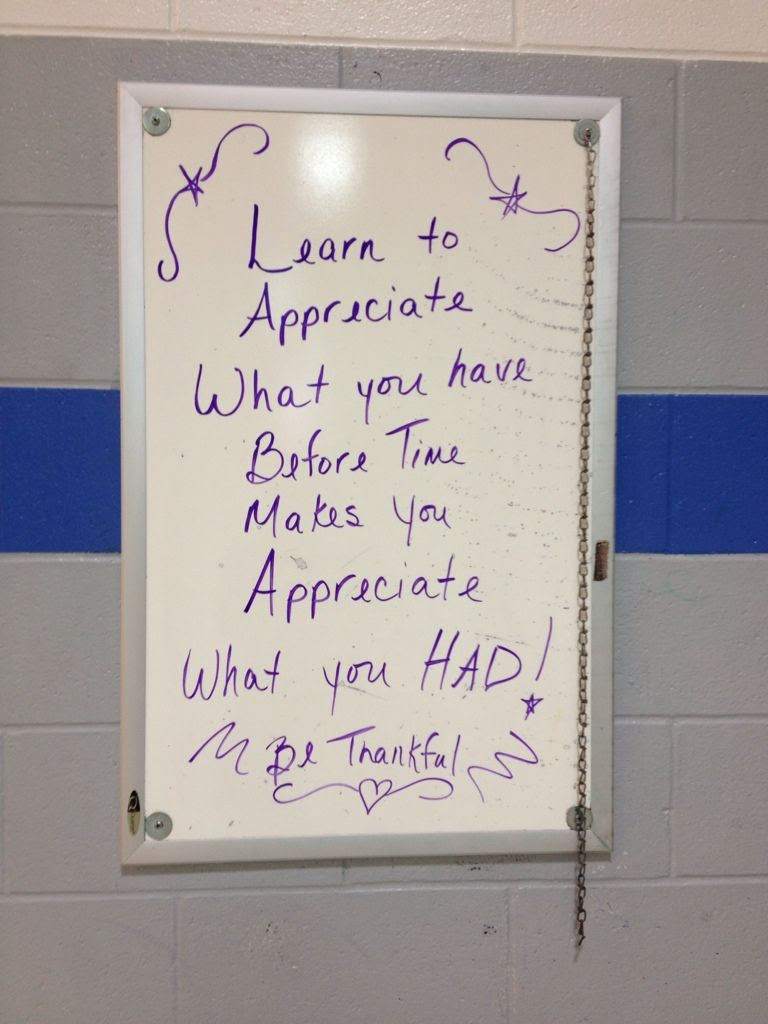 Learn to
Appreciate
What you have
Before Time
Makes you
Appreciate
What you HAD!
Be Thankful